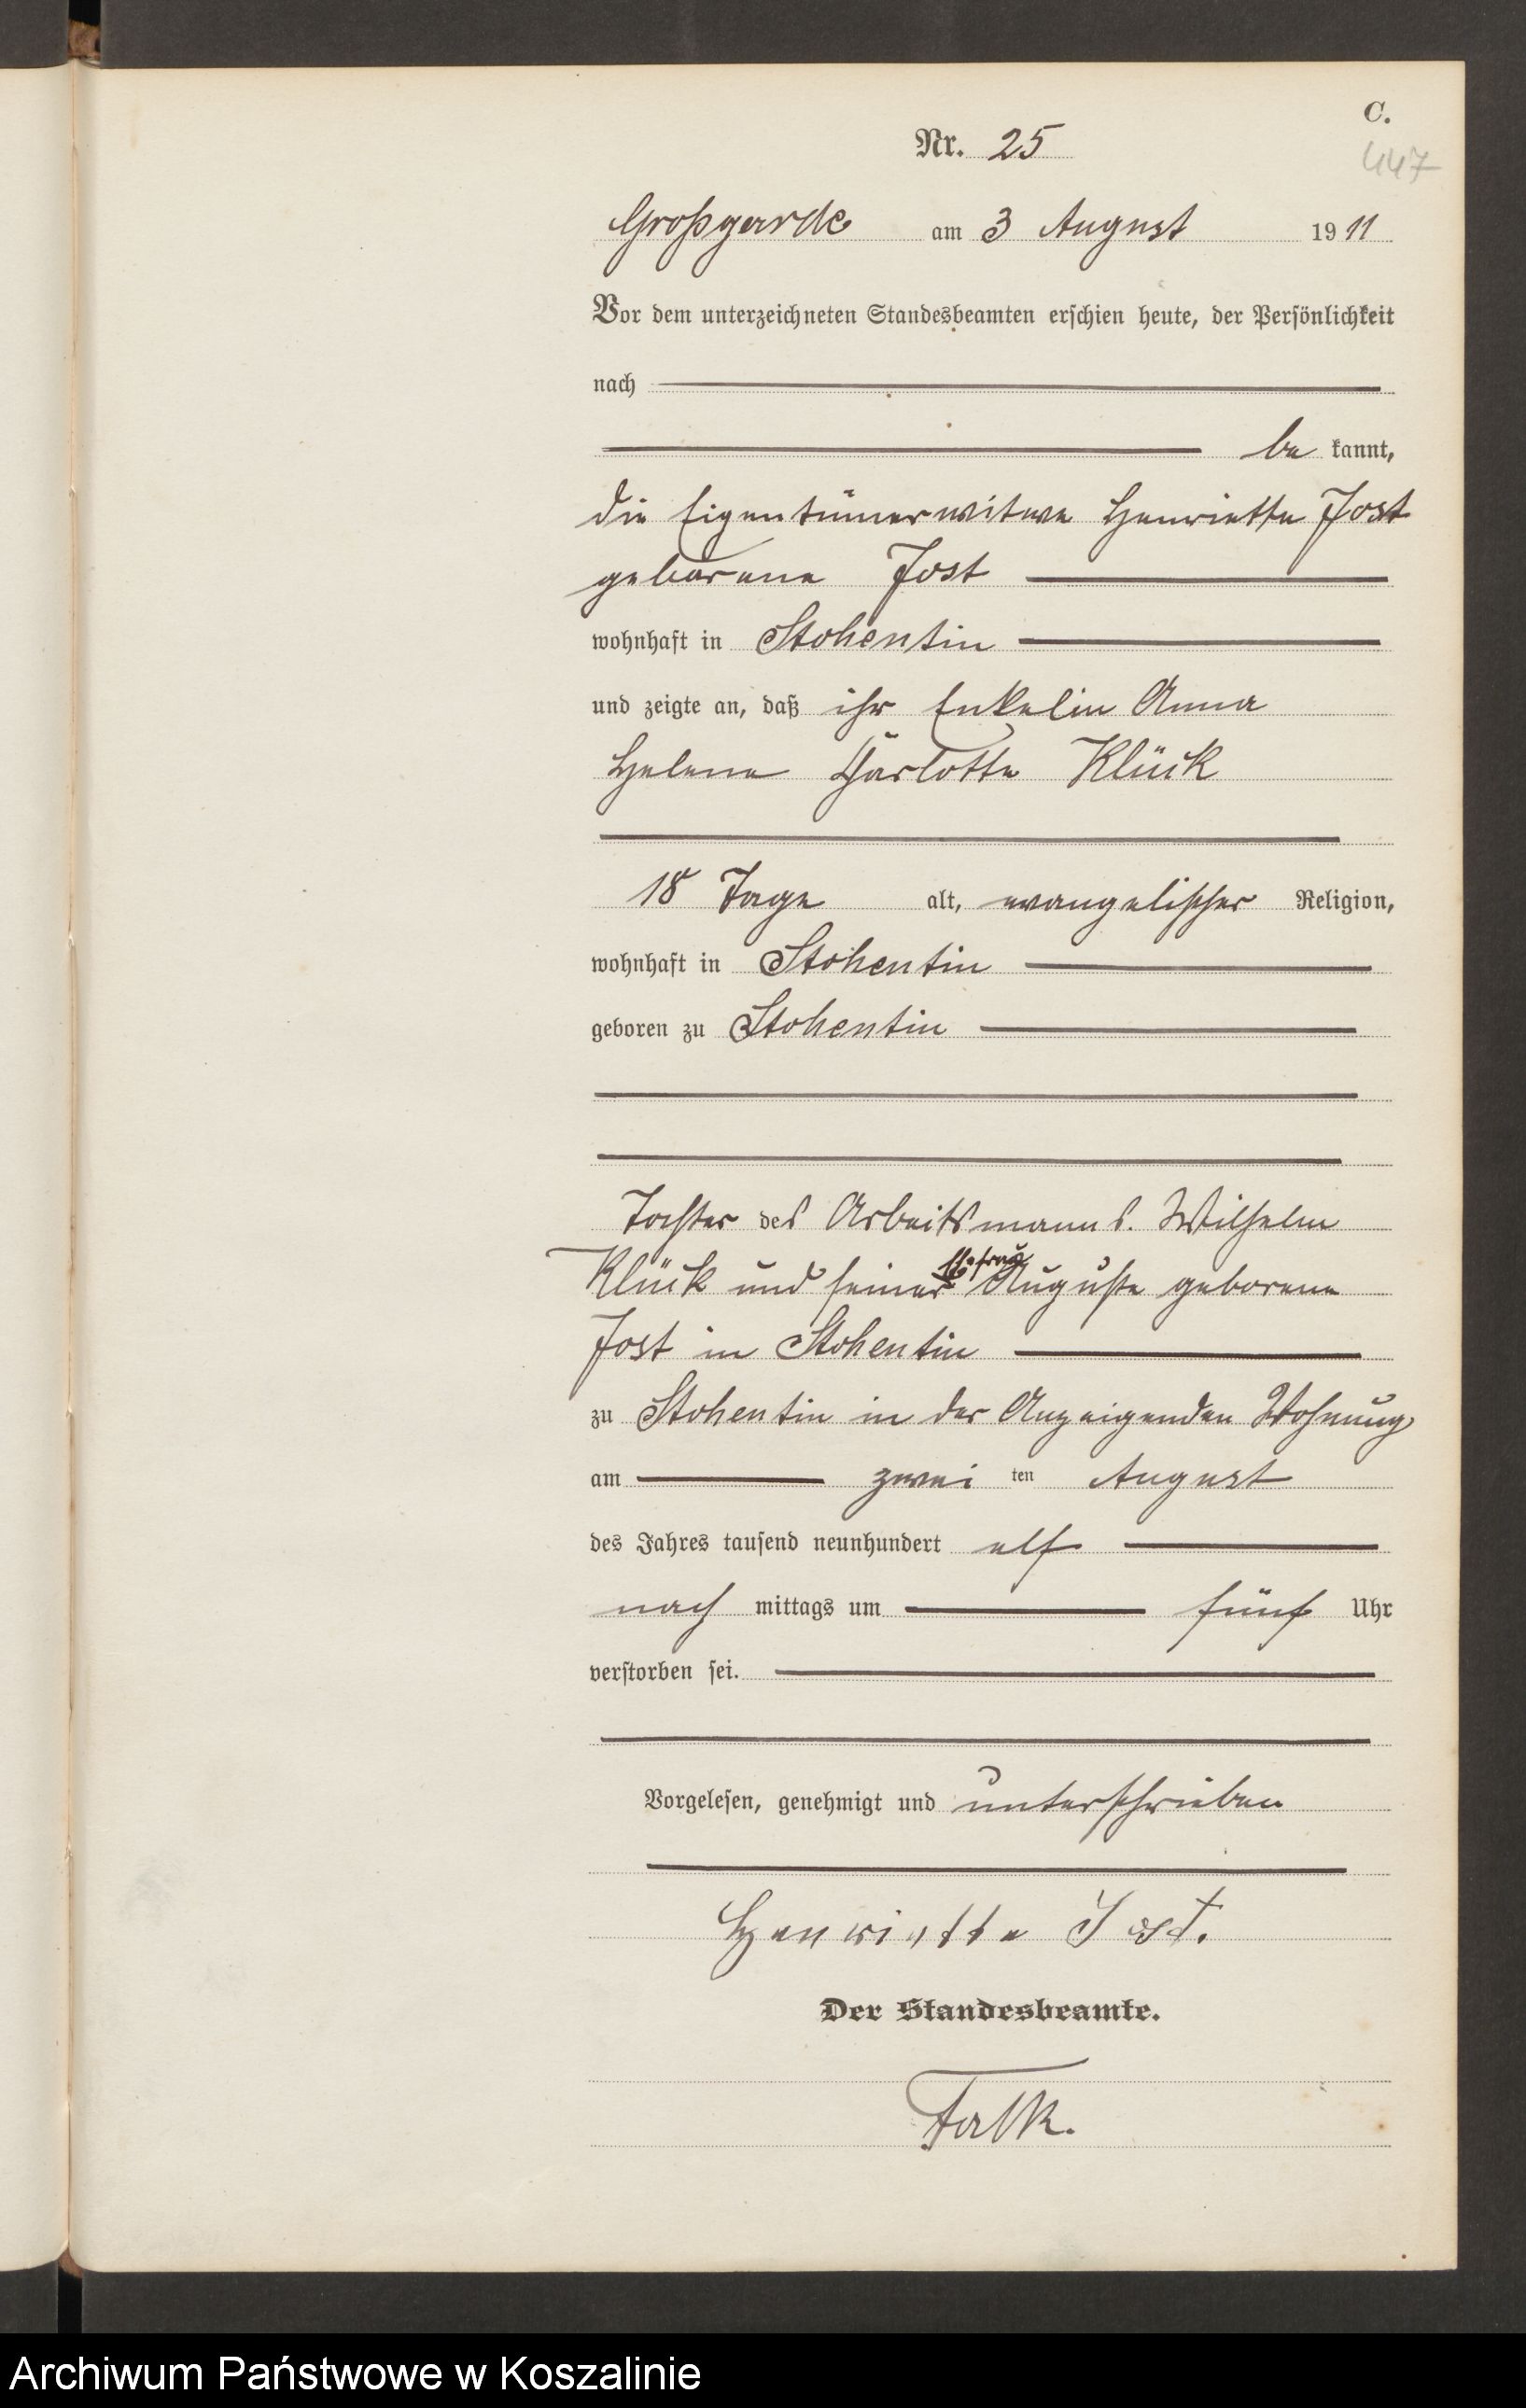 C.
Nr. 25
447
Großgarde am 3 August 1911
Vor dem unterzeichneten Standesbeamten erschien heute, der Persönlichkeit
nach
be kannt,
die Eigentümerwitwe Henriette Jost
geborene Jost
wohnhaft in Stohentin
und zeigte an, daß ihr Enkelin Anna
Helene Charlotte Klück
18 Tage alt, evangelischer Religion,
wohnhaft in Stohentin
geboren zu Stohentin
Tochter des Arbeitsmanns. Wilhelm
Klück und seiner Ehefrau Auguste geborene
Jost in Stohentin
zu Stohentin in der Anzeigenden Wohnung
am zwei ten August
des Jahres tausend neunhundert elf
nach mittags um fünf Uhr
verstorben sei.
Vorgelesen, genehmigt und unterschrieben
Henriette Jost.
Der Standesbeamte.
Falk.
Archiwum Państwowe w Koszalinie